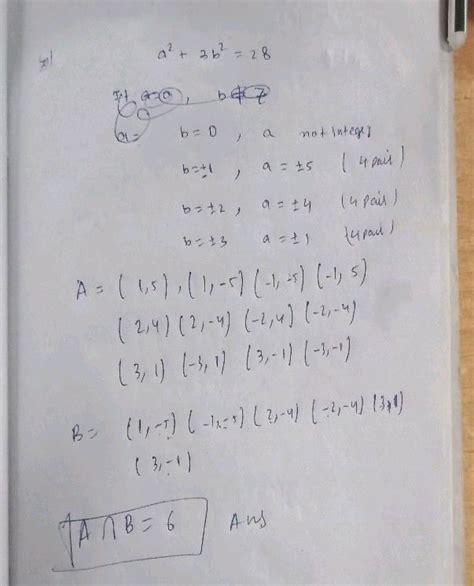 a² + 3b² = 28
b = 0 , a not integer
b = ±1 , a = ±5 (4 pair)
b = ±2 , a = ±4 (4 pair)
b = ±3 a = ±1 (4 pair)
A = (1,5) , (1,-5) (-1,-5) (-1, 5)
(2,4) (2,-4) (-2,4) (-2,-4)
(3, 1) (-3, 1) (3,-1) (-3,-1)
B = (1,-5) (-1,-5) (2,-4) (-2,-4) (3,1)
(3,-1)
A ∩ B = 6 Ans